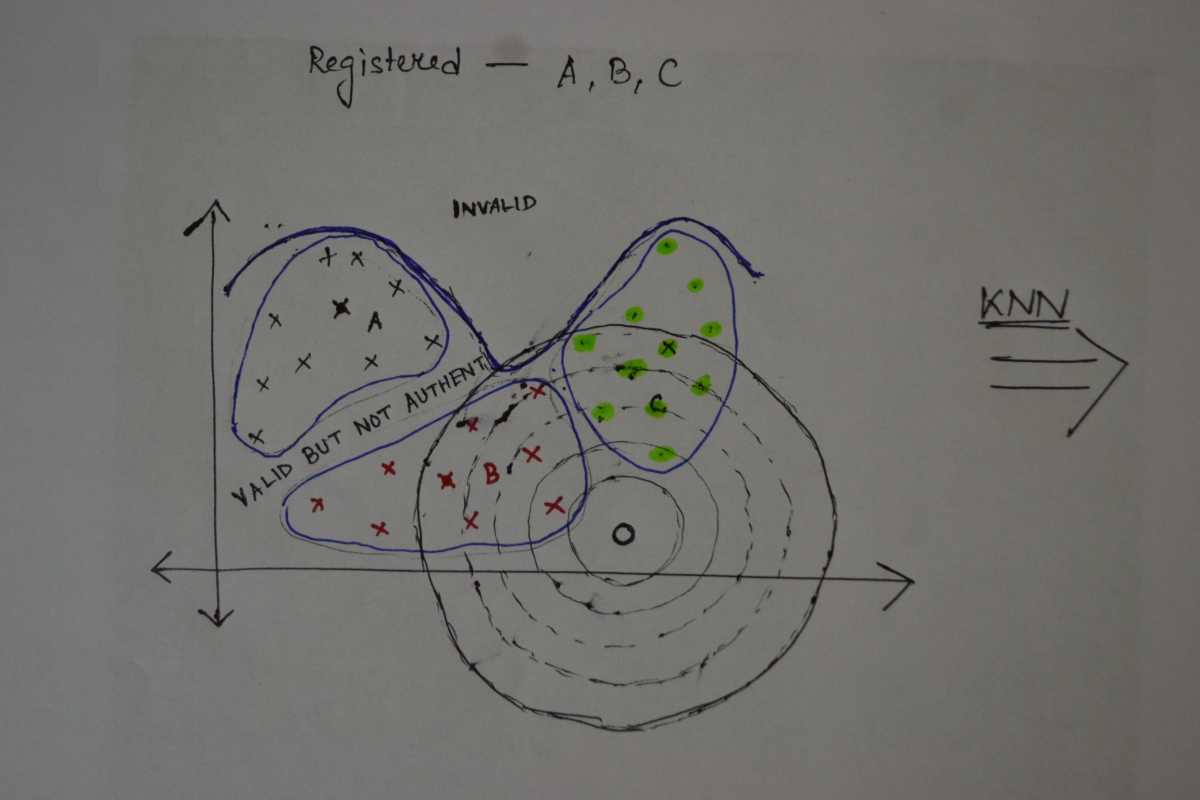 Registered — A, B, C
INVALID
A
KNN
VALID BUT NOT AUTHENT
C
B